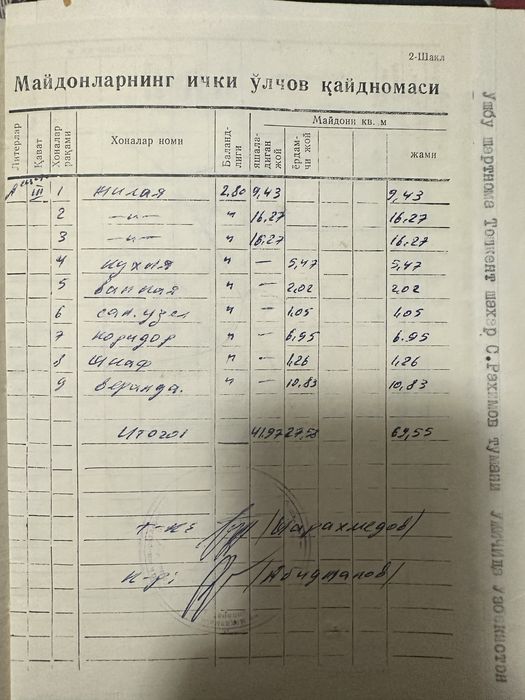 2-Шакл
Майдонларнинг ички ўлчов қайдномаси
Литерлар Қават Хоналар рақами Хоналар номи Баланд-лиги Майдони кв. м
яшала-диган жой ёрдам-чи жой жами
А III 1 жилая 2.80 9,43 9,43
2 —"— " 16.27 16.27
3 —"— " 16.27 16.27
4 кухня " — 5,47 5,47
5 ванная " — 2.02 2.02
6 сан. узел " — 1.05 1.05
7 коридор " — 6.95 6.95
8 шкаф " — 1.26 1.26
9 веранда. " — 10.83 10,83
Итого: 41.97 27,58 69,55
т-к: /Шарахмедов/
н-р: /
Ушбу шартнома Тошкент шахар С.Рахимов тумани